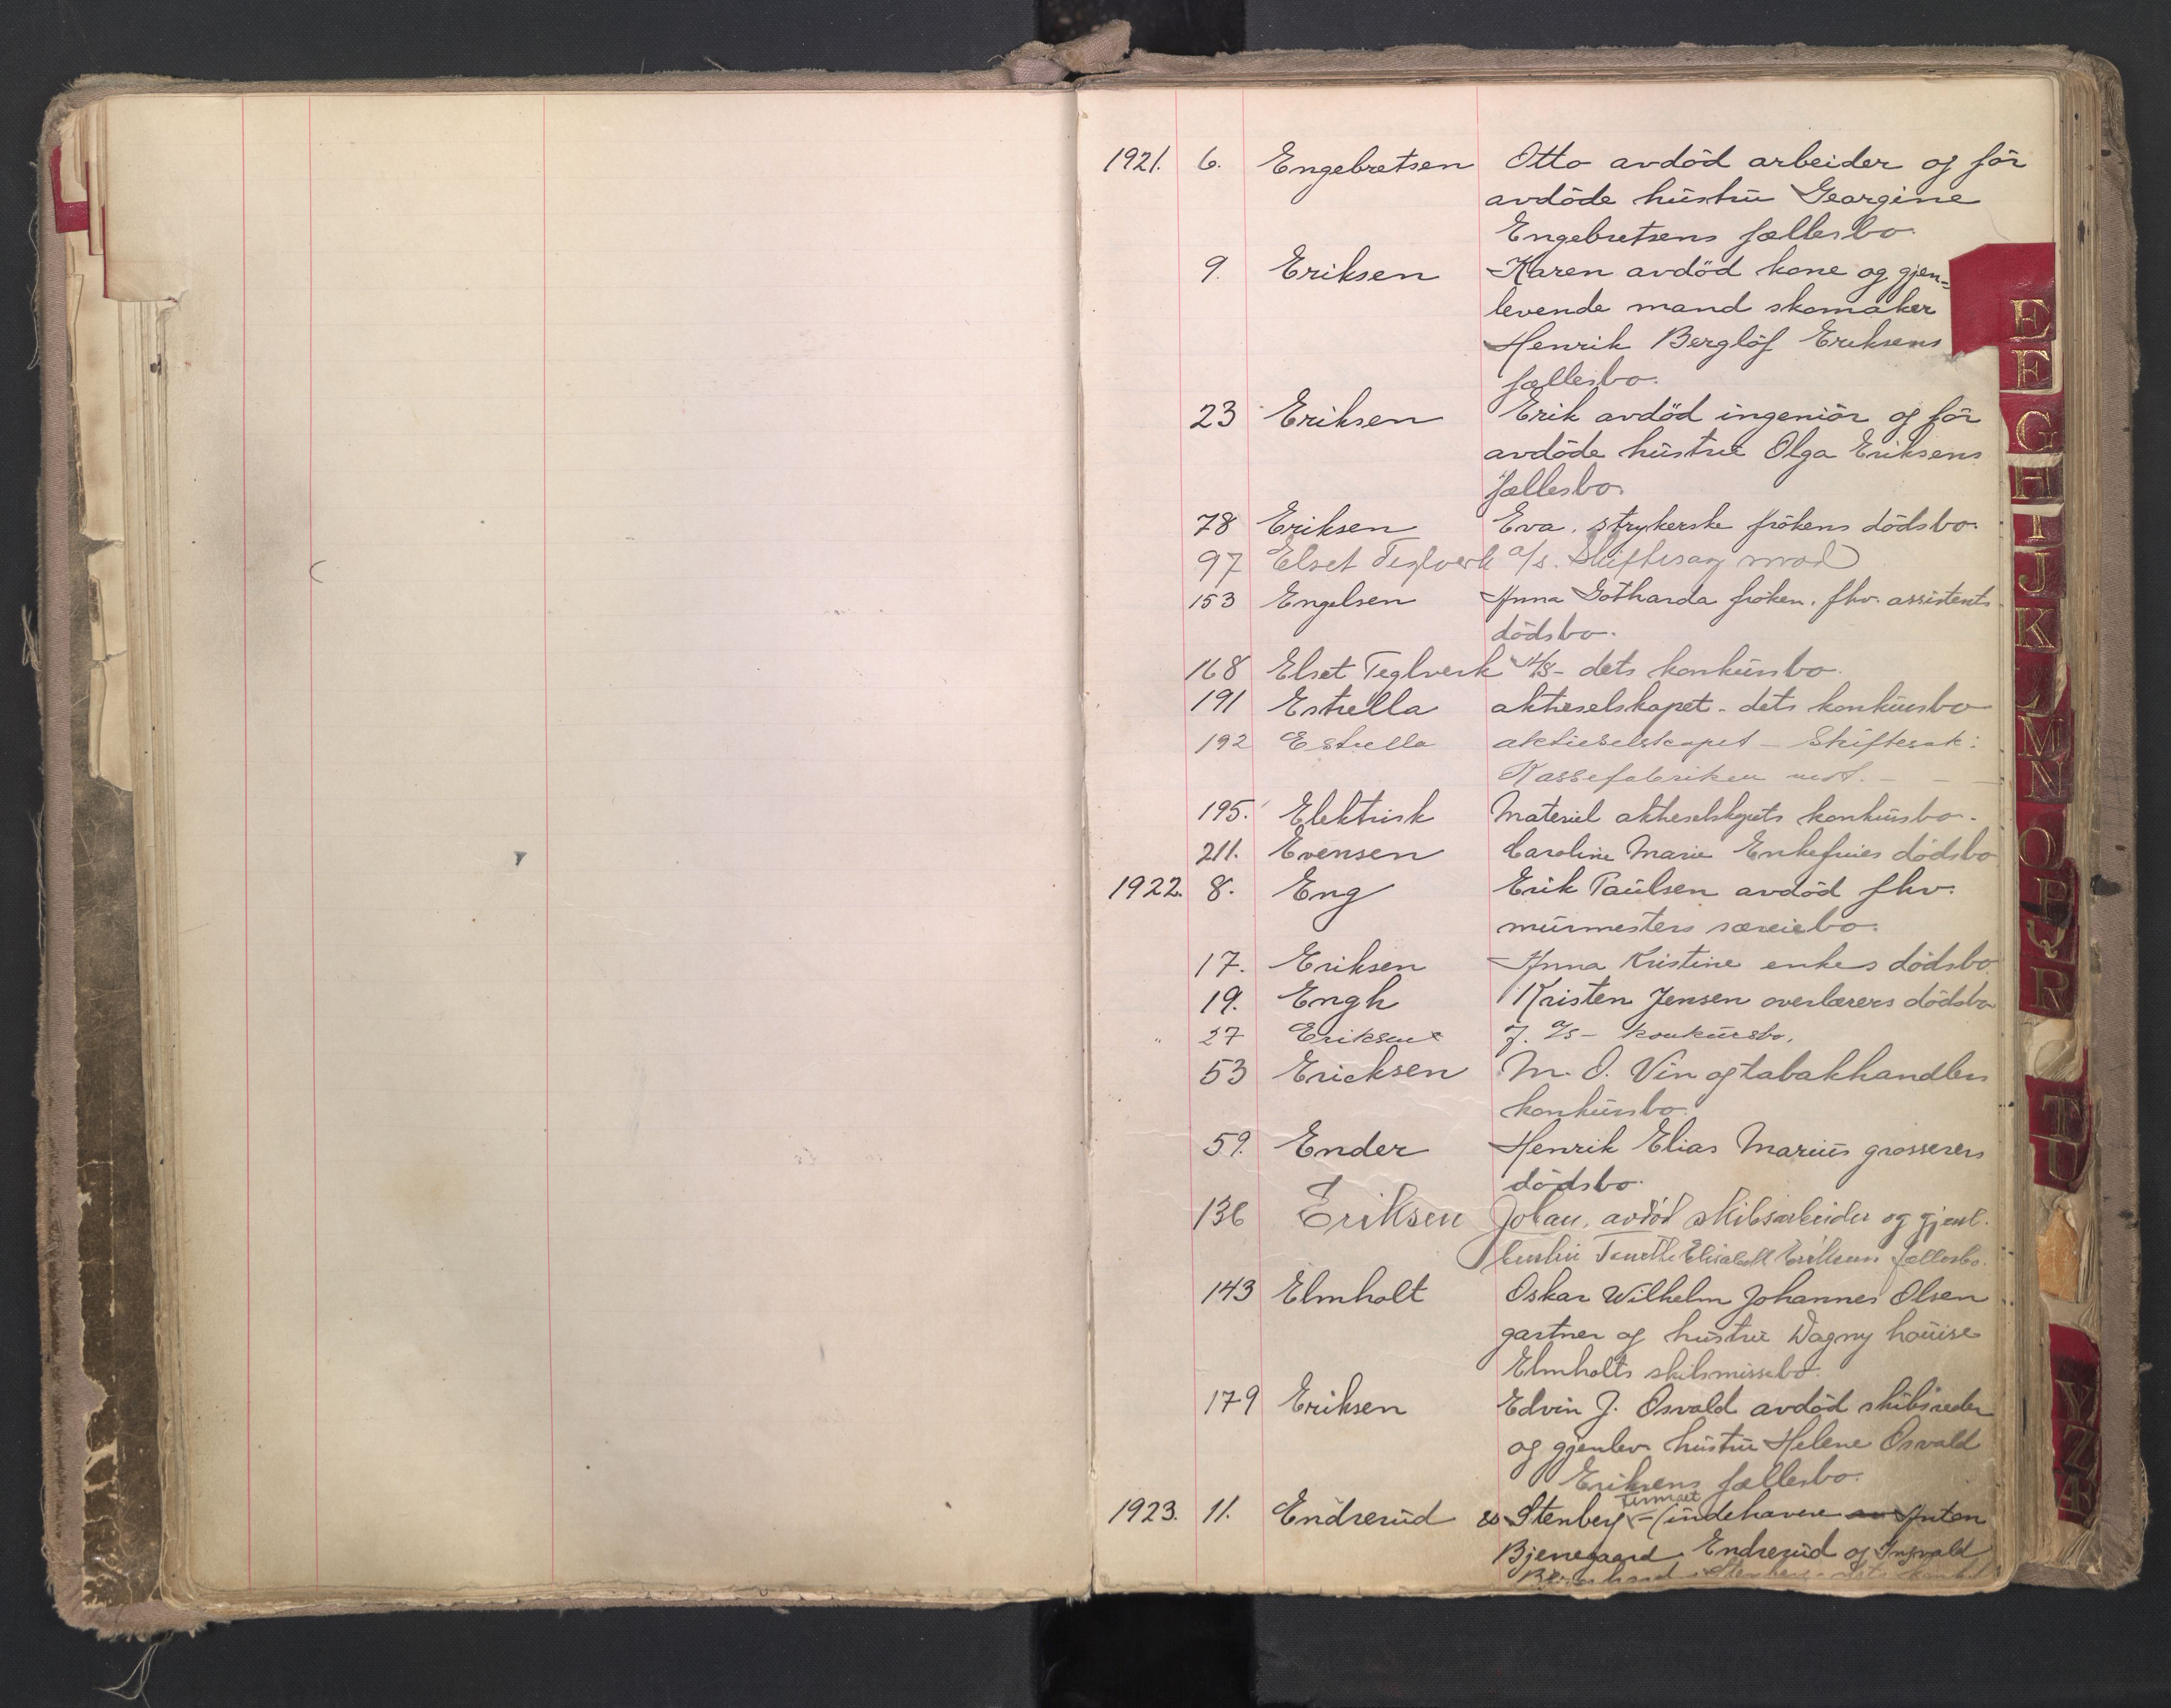 1921. 6. Engebretsen Otto avdöd arbeider ogför
avdöde hüstrü Georgine
Engebretsens fællesbo.
9. Eriksen Karen avdöd kone og gjen-
levende mand skomaker
Henrik Berglöf Eriksens
fællesbo.
23 Eriksen Erik avdöd ingeniör og för
avdöde hüstrü Olga Eriksens
fællesbo.
78 Eriksen Eva, strykerske frökens dödsbo.
97 Elset Teglverk a/s. Skiftesag mod
153 Engelsen Anna Gotharda fröken, fhv. assistents
dödsbo.
168 Elset Teglverk A/S - dets konkürsbo.
191 Estrella aktieselskapet - dets konkürsbo
192 Estrella aktieselskapet - Skiftesak:
Kassefabriken mot. - - -
195. Elektrisk Materiel aktieselskapets konkürsbo.
211. Evensen Caroline Marie Enkefrües dödsbo
1922. 8. Eng Erik Paülsen avdöd fhv.
mürmesters særeiebo.
17. Eriksen Anna Kristine enkes dödsbo
19. Engh Kristen Jensen overlærers dödsbo
" 27 Eriksen J. A/S - konkürsbo.
53 Ericksen M. O. Vin og tabakhandlers
konkürsbo.
59. Ender Henrik Elias Mariüs grosserers
dödsbo.
136 Eriksen Johan, avdöd skibsarbeider og gjenl.
hustru Elisabeth Eriksens fællesbo.
143 Elmholt Oskar Wilhelm Johannes Olsen
gartner og hüstrü Dagny Loüise
Elmholts skilsmissebo.
179 Eriksen Edvin J. Osvald avdöd skibsreder
og gjenlev. hüstrü Helene Osvald
Eriksens fællesbo.
1923. 11. Endrerüd & Stenberg firmaet - (indehavere av Anton
Bjenegaard Endrerüd og Ingvald
Bernhard Stenberg - dets
E
F
G
H
I
J
K
L
M
N
O
P
Q
R
T
U
Y
Z